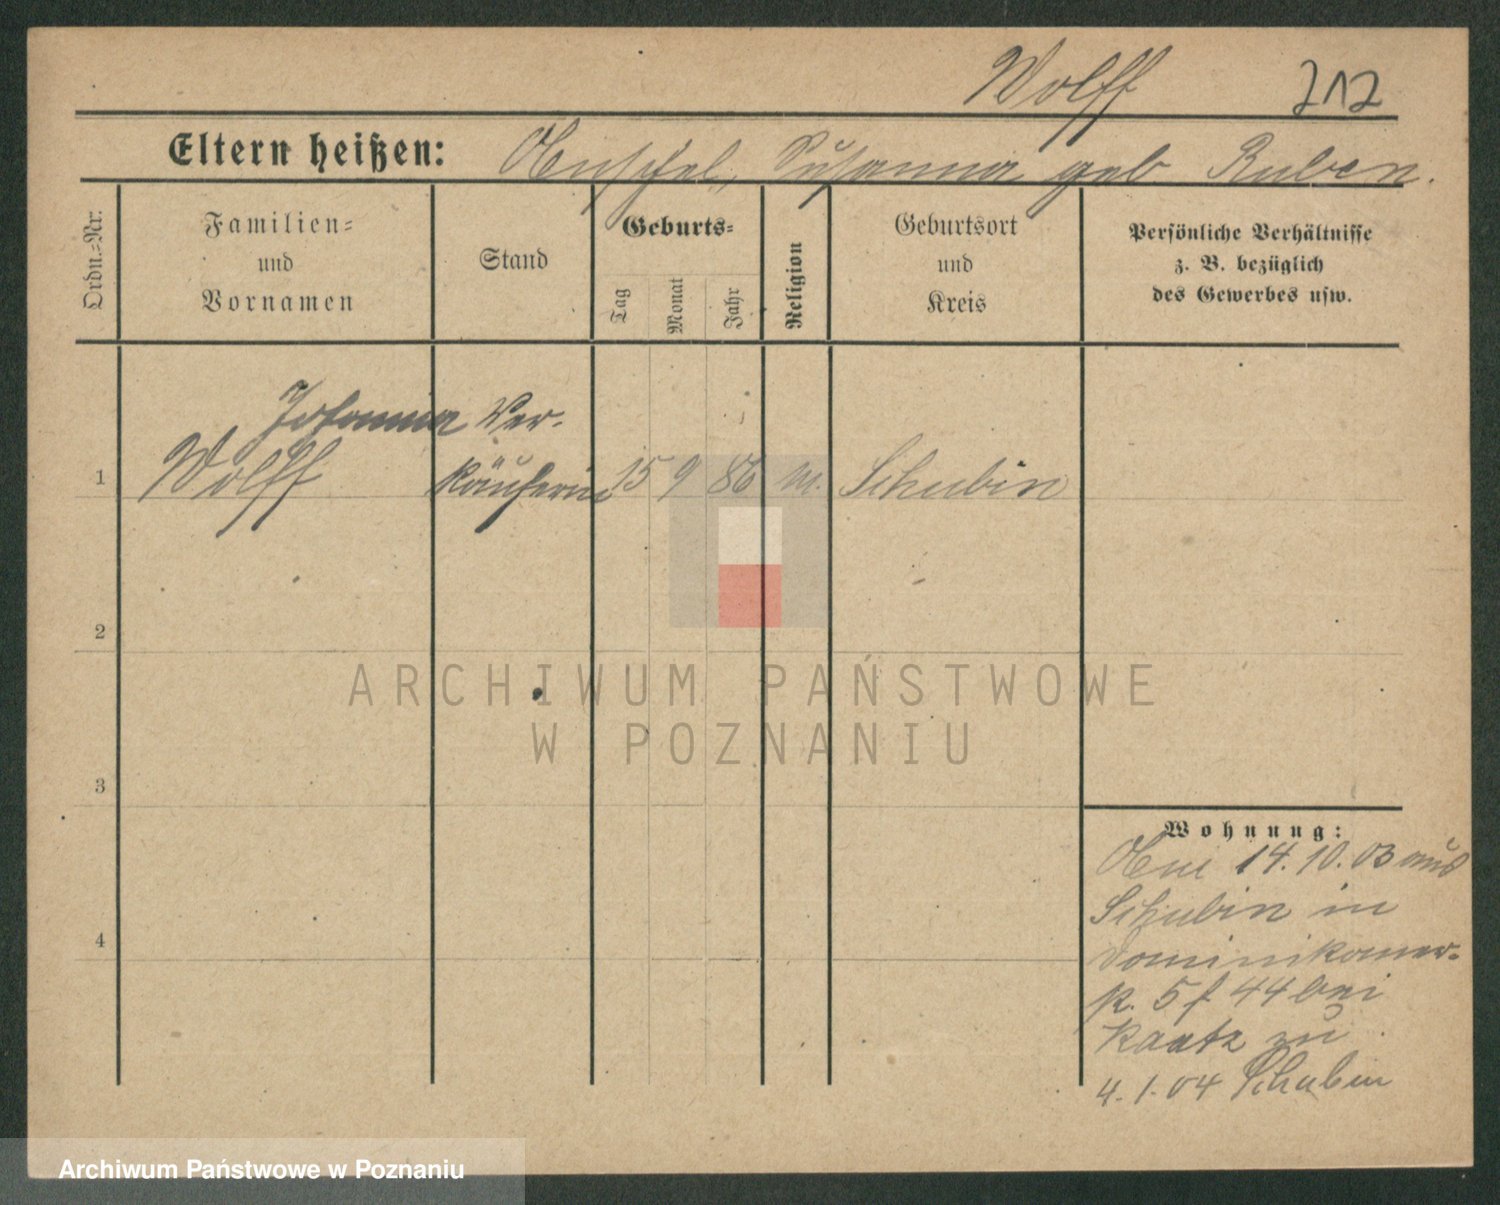 Wolff 212
Eltern heißen: Susanna geb Ruben.
Ordn.-Nr.
Familien-
und
Vornamen
Stand
Geburts-
Tag
Monat
Jahr
Religion
Geburtsort
und
Kreis
Persönliche Verhältnisse
z. B. bezüglich
des Gewerbes usw.
Johanna Ver-
1 Wolff käuferin 15 9 86 m. Schubin
2
3
4
Wohnung:
14.10.03 aus
Schubin in
Dominikaner-
5 44 bei
Kaatz zu
4.1.04 Schubin
ARCHIWUM PAŃSTWOWE
W POZNANIU
Archiwum Państwowe w Poznaniu